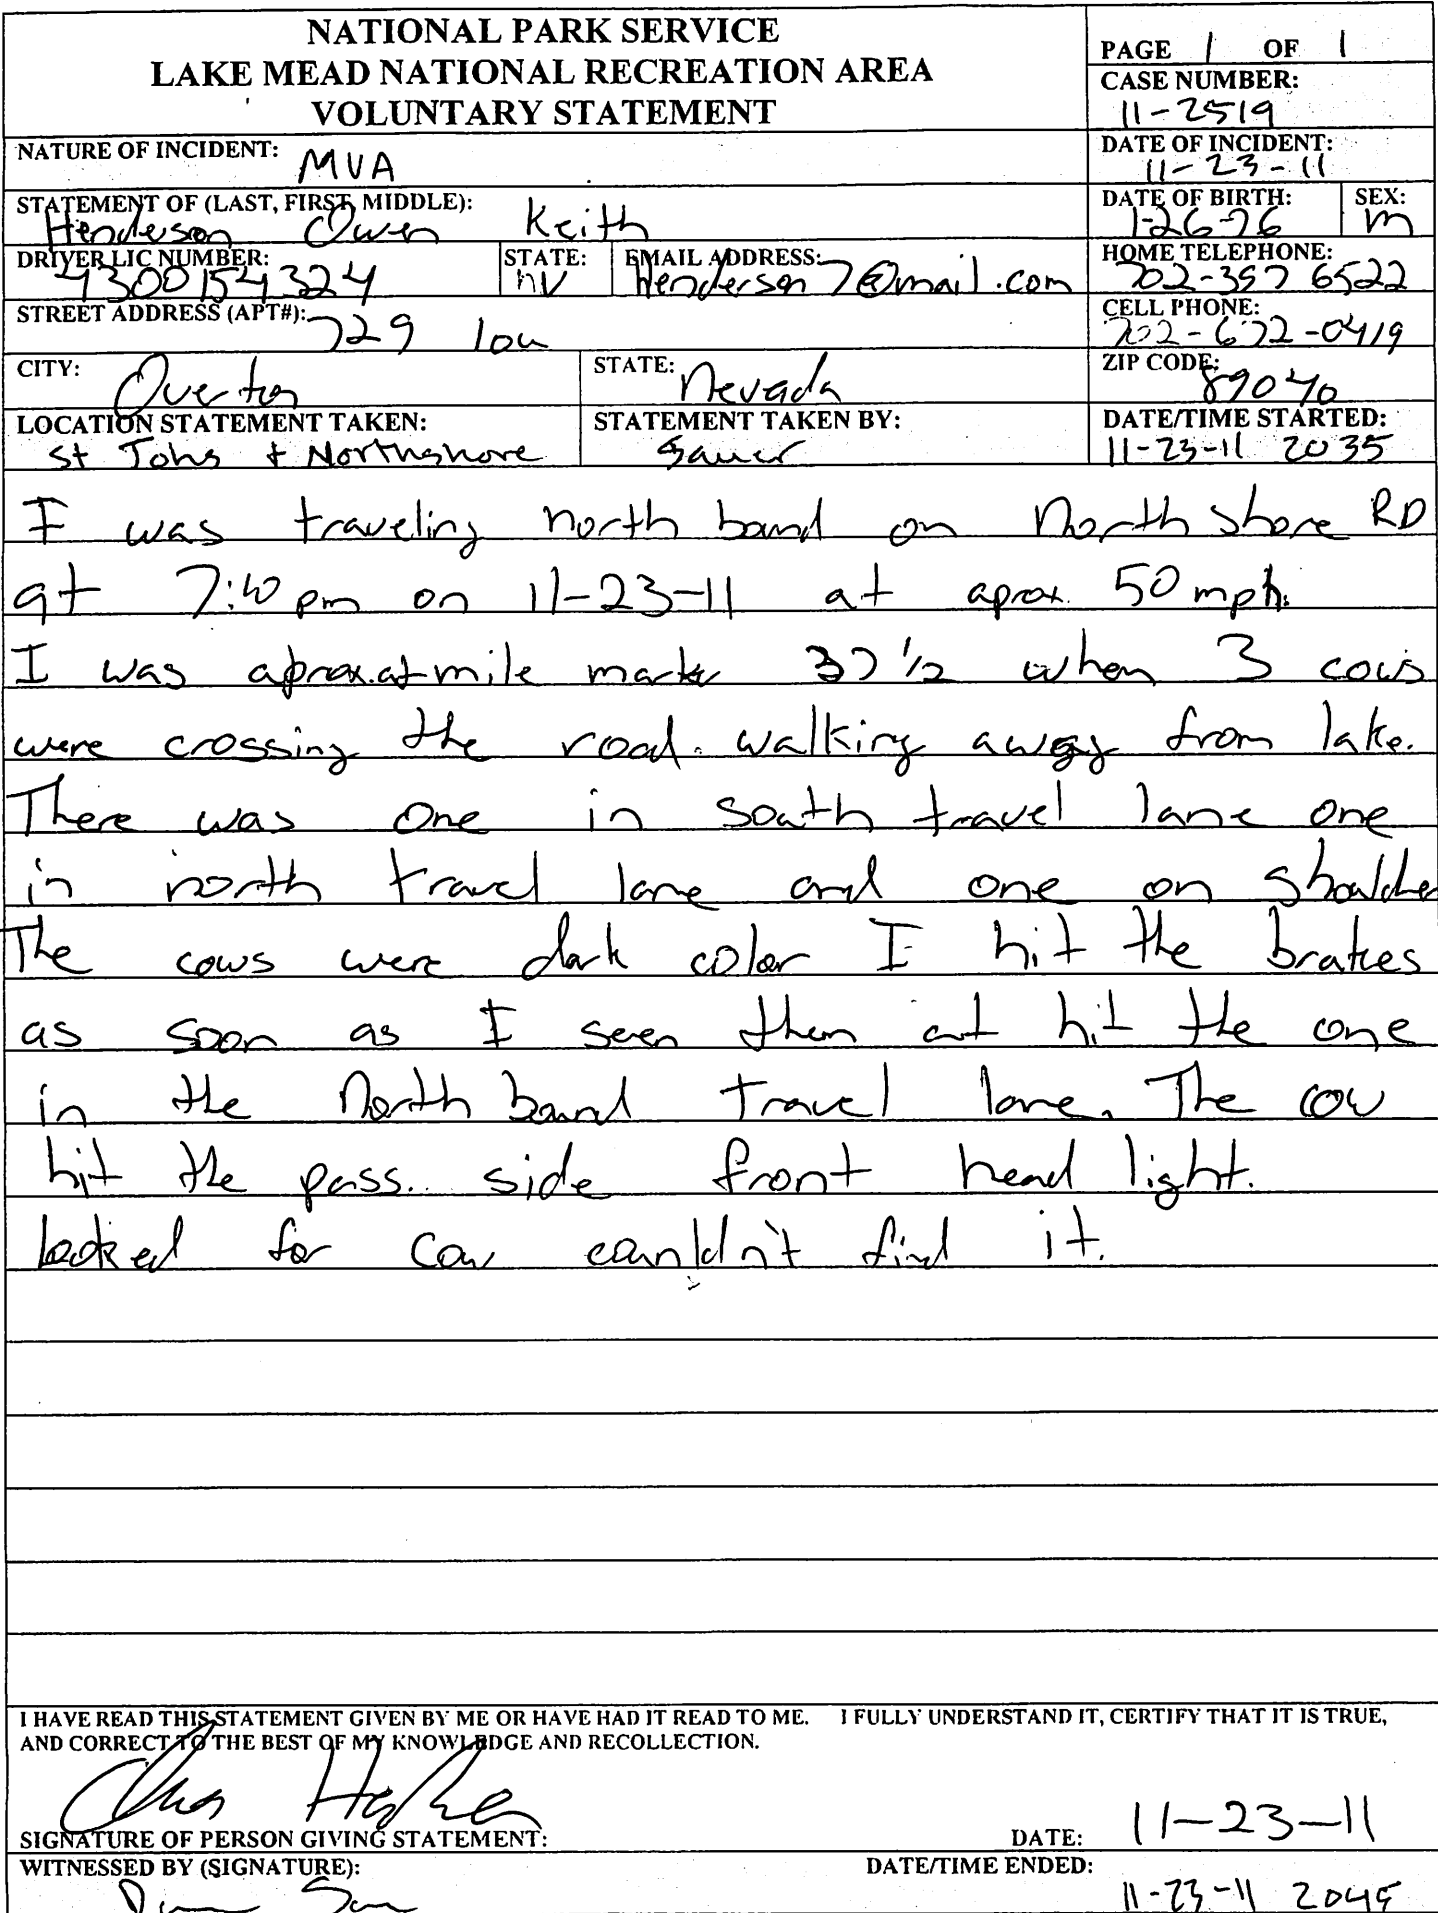 NATIONAL PARK SERVICE
LAKE MEAD NATIONAL RECREATION AREA
VOLUNTARY STATEMENT
PAGE 1 OF 1
CASE NUMBER:
11-2519
NATURE OF INCIDENT: MVA
DATE OF INCIDENT:
11-23-11
STATEMENT OF (LAST, FIRST, MIDDLE):
Henderson Owen Keith
DATE OF BIRTH:
1-26-76
SEX:
m
DRIVER LIC NUMBER:
4300154324
STATE:
nV
EMAIL ADDRESS:
Henderson7@mail.com
HOME TELEPHONE:
702-397 6522
STREET ADDRESS (APT#): 729 lou
CELL PHONE:
702-672-0419
CITY: Overton
STATE: Nevada
ZIP CODE:
89040
LOCATION STATEMENT TAKEN:
St Johs + Northshore
STATEMENT TAKEN BY:
Sauer
DATE/TIME STARTED:
11-23-11 2035
I was traveling north bound on North shore RD
at 7:10 pm on 11-23-11 at aprox. 50 mph.
I was aprox.at mile marker 37 1/2 when 3 cows
were crossing the road. walking away from lake.
There was one in south travel lane one
in north travel lane and one on shoulder
The cows were dark color I hit the brakes
as soon as I seen them and hit the one
in the North bound travel lane. The cow
hit the pass. side front head light.
looked for cow couldn't find it.
I HAVE READ THIS STATEMENT GIVEN BY ME OR HAVE HAD IT READ TO ME. I FULLY UNDERSTAND IT, CERTIFY THAT IT IS TRUE,
AND CORRECT TO THE BEST OF MY KNOWLEDGE AND RECOLLECTION.
SIGNATURE OF PERSON GIVING STATEMENT:
DATE: 11-23-11
WITNESSED BY (SIGNATURE):
DATE/TIME ENDED:
11-23-11 2045